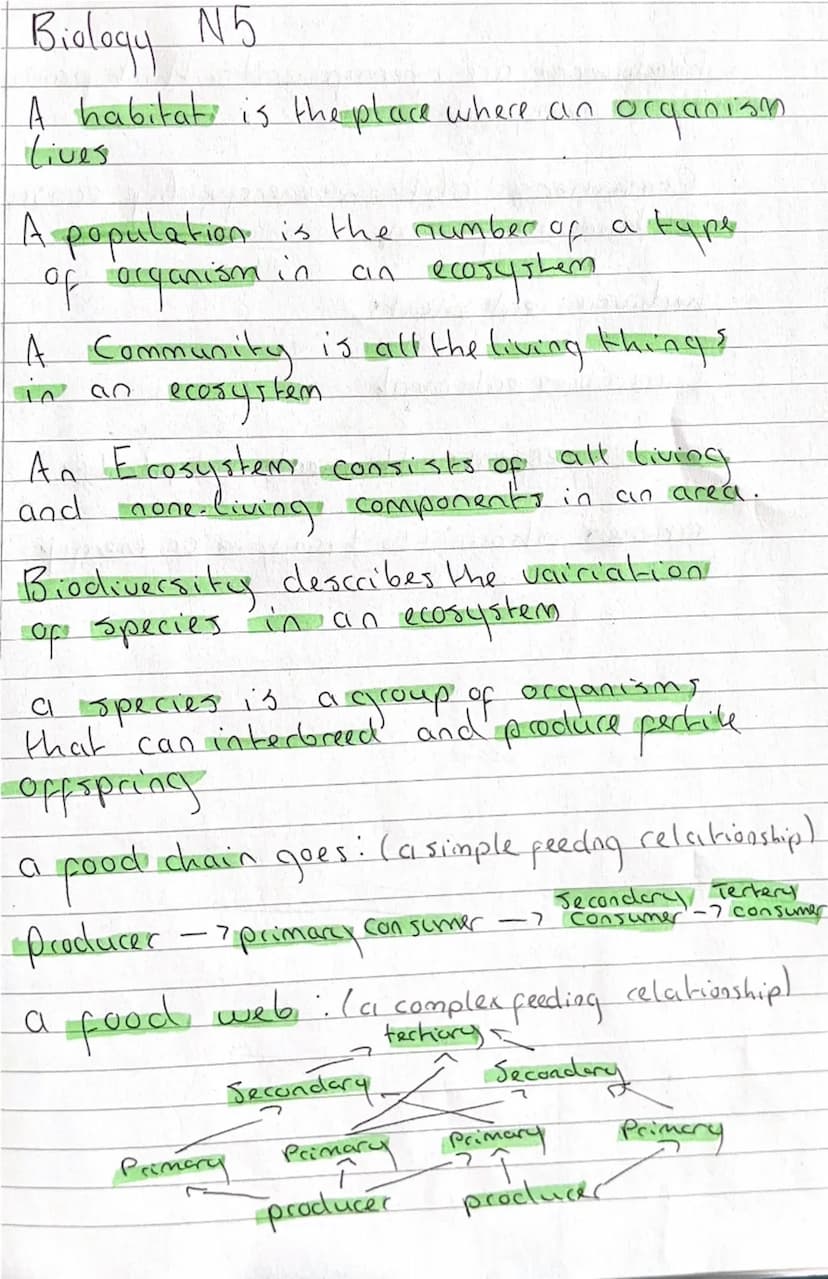 Biology N5
A habitat is the place where an organism
lives
A population is the number of a type
of organism in an ecosystem
A Community is all the living things
in an ecosystem
An Ecosystem consists of all living
and none-living components in an area.
Biodiversity describes the vairiation
of species in an ecosystem
a species is a group of organisms
that can interbreed and produce fertile
offspring
a food chain goes: (a simple feedng relationship)
producer → primary consumer → Secondary consumer → Tertery consumer
a food web : (a complex feeding relationship)
tertiary
Secondary Secondary
Primary Primary Primary Primary
producer producer